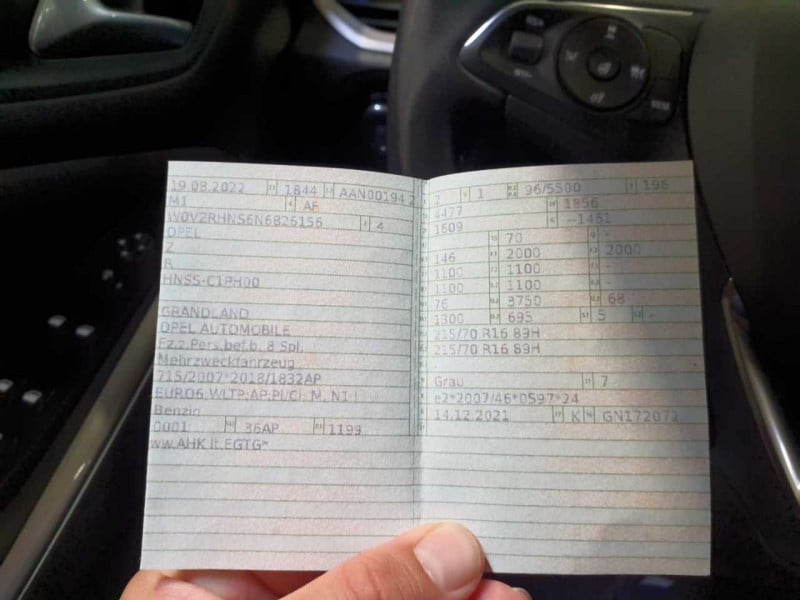 19.08.2022 1844 AAN00194 2
M1 AF
W0VZRHNS6N6826156 4
OPEL
Z
R
HNS5-C1PH00
GRANDLAND
OPEL AUTOMOBILE
Fz.z.Pers.bef.b. 8 Spl.
Mehrzweckfahrzeug
715/2007*2018/1832AP
EURO6;WLTP;AP;PLCI; M, N1 I
Benzin
0001 36AP 1199
ww.AHK lt.EGTG*
2 1 96/5500 196
4477 1856
1609 -1461
70 -
146 2000 2000
1100 1100 -
1100 1100 -
76 3750 68
1300 695 5 -
215/70 R16 89H
215/70 R16 89H
-
Grau 7
e2*2007/46*0597*24
14.12.2021 K GN172072